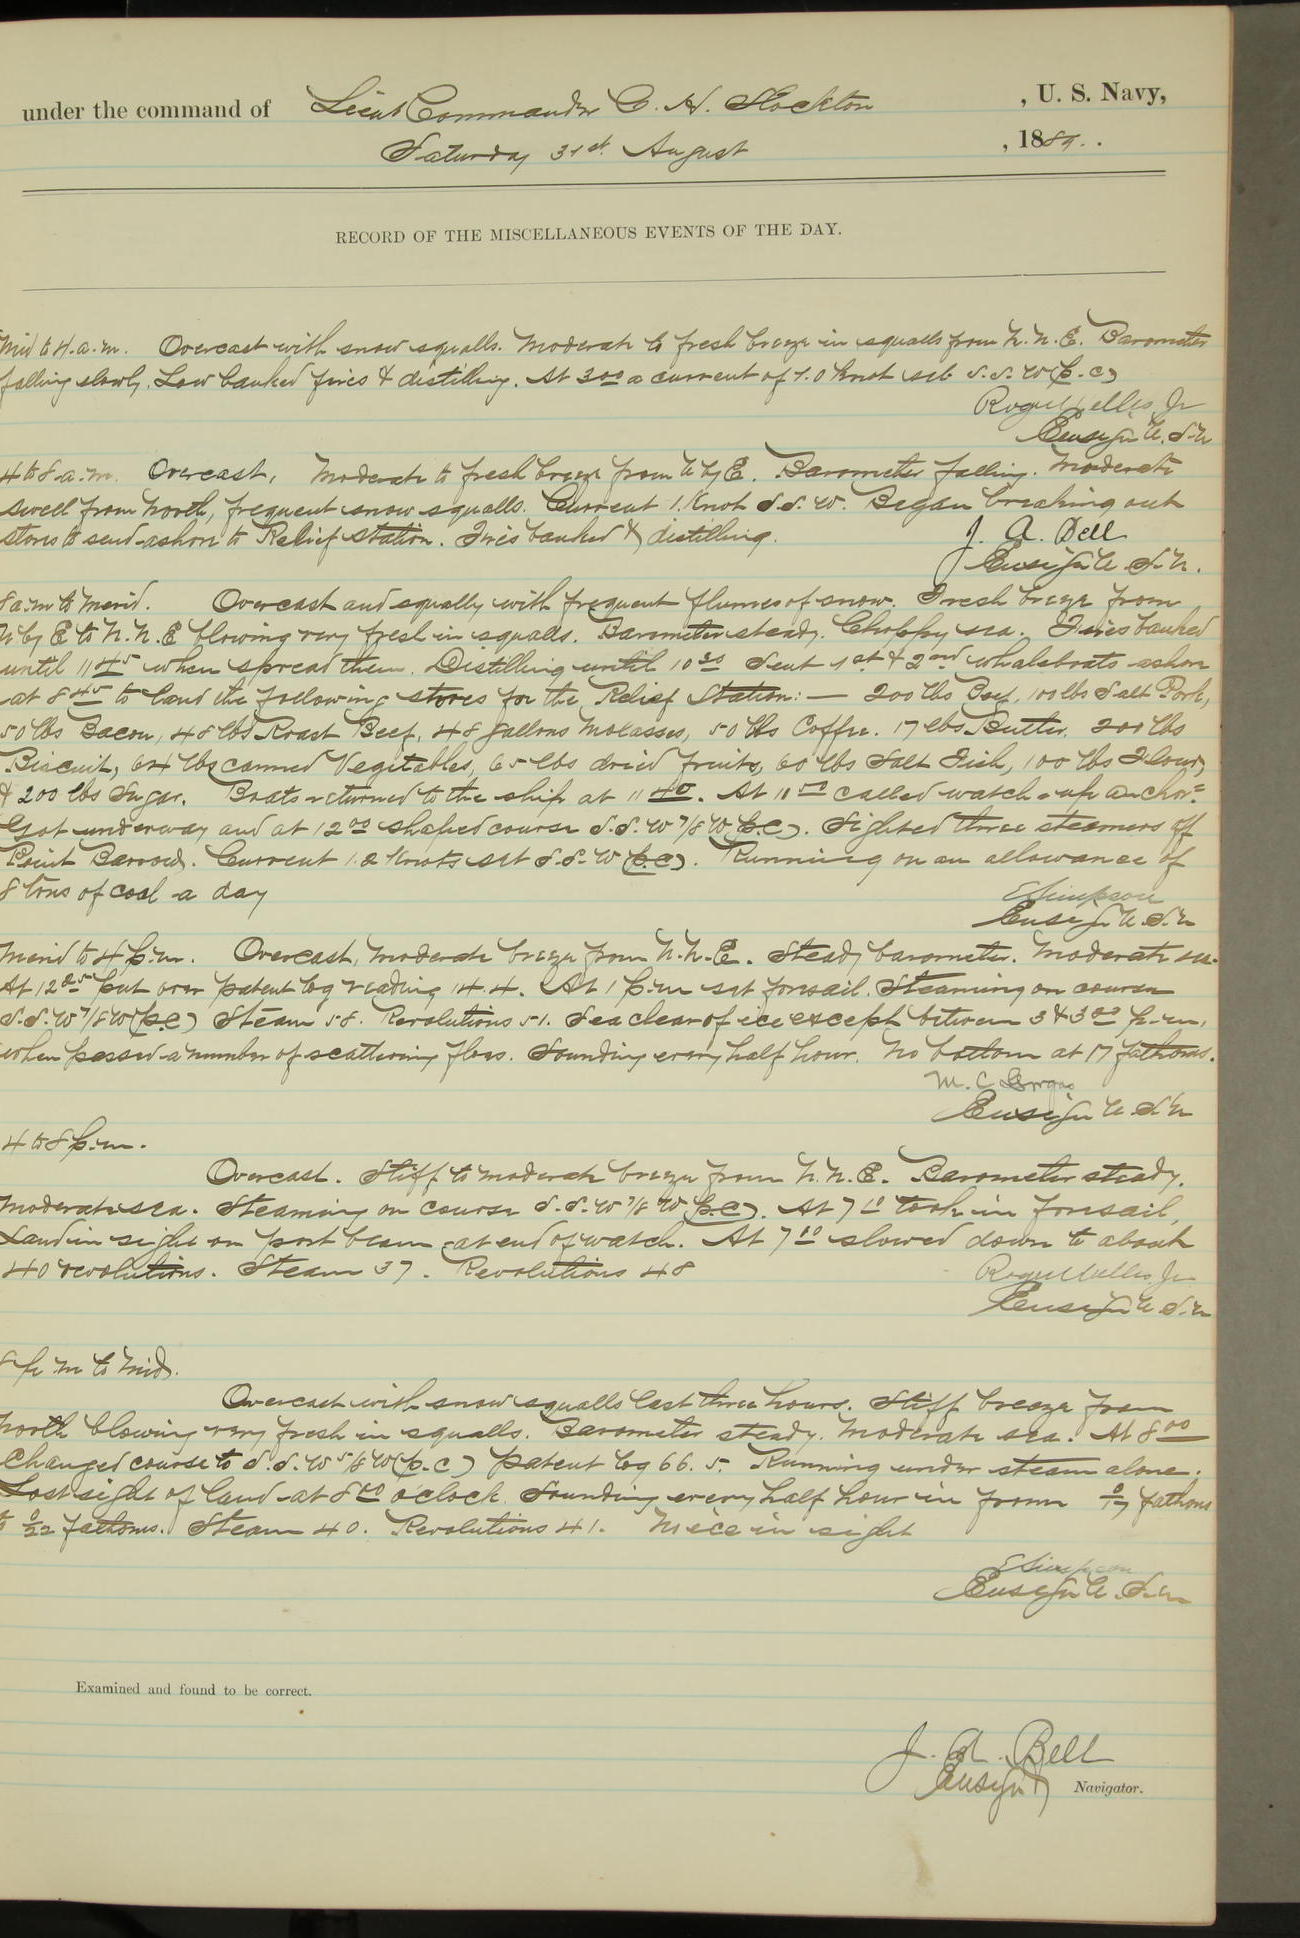 under the command of Lieut Commander C. H. Stockton , U. S. Navy,
Saturday 31st August , 1889.
RECORD OF THE MISCELLANEOUS EVENTS OF THE DAY.
Mid to 4 a.m. Overcast with snow squalls. Moderate to fresh breeze in squalls from N.N.E. Barometer
falling slowly. Low banked fires & distilling. At 3 00 a current of 1.0 knot set S.S.W (p.c)
Roger Welles Jr
Ensign U.S.N
4 to 8 a.m. Overcast, Moderate to fresh breeze from N by E. Barometer falling. Moderate
swell from North, frequent snow squalls. Current 1. Knot S.S.W. Began breaking out
stores to send ashore to Relief station. Fires banked & distilling.
J. A. Bell
Ensign U.S.N.
8 a.m to Merid. Overcast and squally with frequent flurries of snow. Fresh breeze from
N by E to N.N.E blowing very fresh in squalls. Barometer steady. Choppy sea. Fires banked
until 11 45 when spread them. Distilling until 10 30 Sent 1st & 2nd whaleboats ashore
at 8 45 to land the following stores for the Relief Station: — 200 lbs Beef, 100 lbs Salt Pork,
50 lbs Bacon, 48 lbs Roast Beef, 48 gallons Molasses, 50 lbs Coffee. 17 lbs Butter, 200 lbs
Biscuit, 64 lbs canned Vegitables, 65 lbs dried fruits, 60 lbs Salt Fish, 100 lbs Flour,
& 200 lbs Sugar. Boats returned to the ship at 11 40. At 11 50 called watch - up anchor.
Got underway and at 12 00 shaped course S.S.W 7/8 W (p.c). Sighted three steamers off
Point Barrow. Current 1.2 Knots set S.S.W (p.c). Running on an allowance of
8 tons of coal a day
E Simpson
Ensign U.S.N
Merid to 4 p.m. Overcast, moderate breeze from N.N.E. Steady barometer. Moderate sea.
At 12 25 put over patent log reading 14.4. At 1 p.m set foresail. Steaming on course
S.S.W 7/8 W (p.c) Steam 58. Revolutions 51. Sea clear of ice except between 3 & 3 30 p.m,
when passed a number of scattering floes. Sounding every half hour. No bottom at 17 fathoms.
M. C Gorgas
Ensign U.S.N
4 to 8 p.m.
Overcast. Stiff to moderate breeze from N.N.E. Barometer steady.
Moderate sea. Steaming on course S.S.W 7/8 W (p.c). At 7 10 took in foresail,
Land in sight on port beam at end of watch. At 7 10 slowed down to about
40 revolutions. Steam 37. Revolutions 48
Roger Welles Jr
Ensign U.S.N
8 p m to Mid.
Overcast with snow squalls last three hours. Stiff breeze from
North blowing very fresh in squalls. Barometer steady. Moderate sea. At 8 00
Changed course to S.S.W 5/8 W (p.c) patent log 66.5. Running under steam alone.
Lost sight of land at 8 00 o'clock. Sounding every half hour in from 0/17 fathoms
to 0/22 fathoms. Steam 40. Revolutions 41. No ice in sight
E Simpson
Ensign U.S.N
Examined and found to be correct.
J. A. Bell
Ensign Navigator.